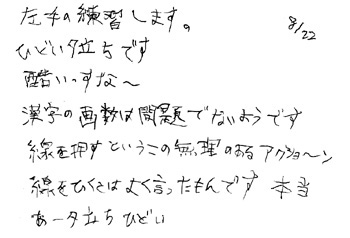 左手の練習します。
8/22
ひどい夕立ちです
酷いっすな〜
漢字の画数は問題でないようです
線を押すというこの無理のあるアクショ〜ン
線をひくとはよく言ったもんです 本当
あー夕立ちひどい